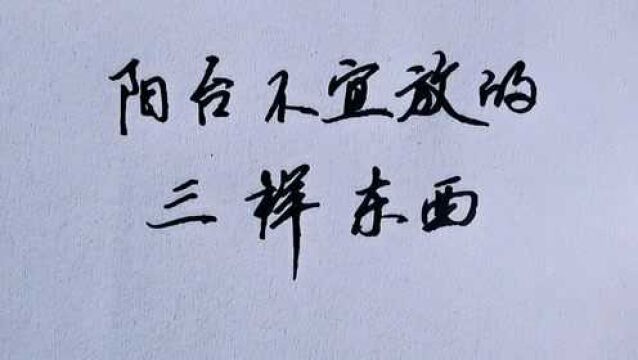 阳台不宜放的
三样东西